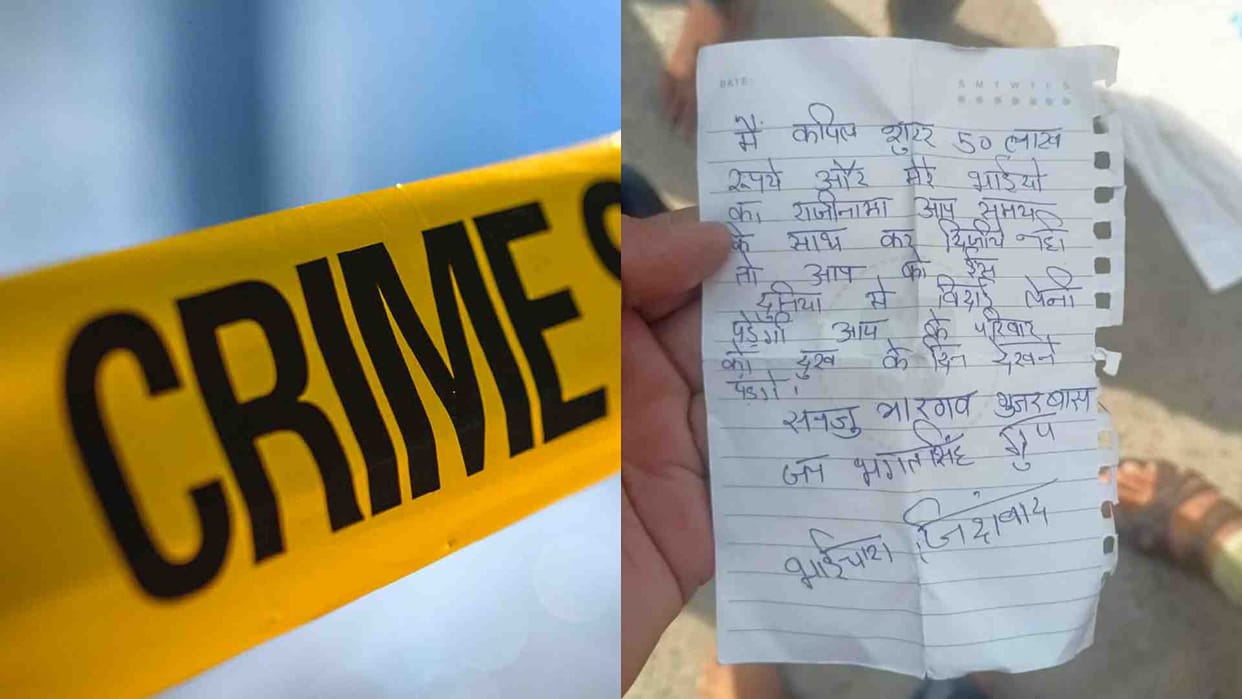 CRIME S
DATE:
S M T W T F S
मैं कपिल शुटर 50 लाख
रूपये और मेरे भाईयो
का राजीनामा आप समय
के साथ कर दिजीये नही
तो आप को ईस
दुनिया से विदाई लेनी
पड़ेगी आप के परिवार
को दुख के दिन देखने
पड़ेगे।
सनजु भारगव गुजरबास
जय भगतसिंह ग्रुप
भाईचारा जिंदाबाद